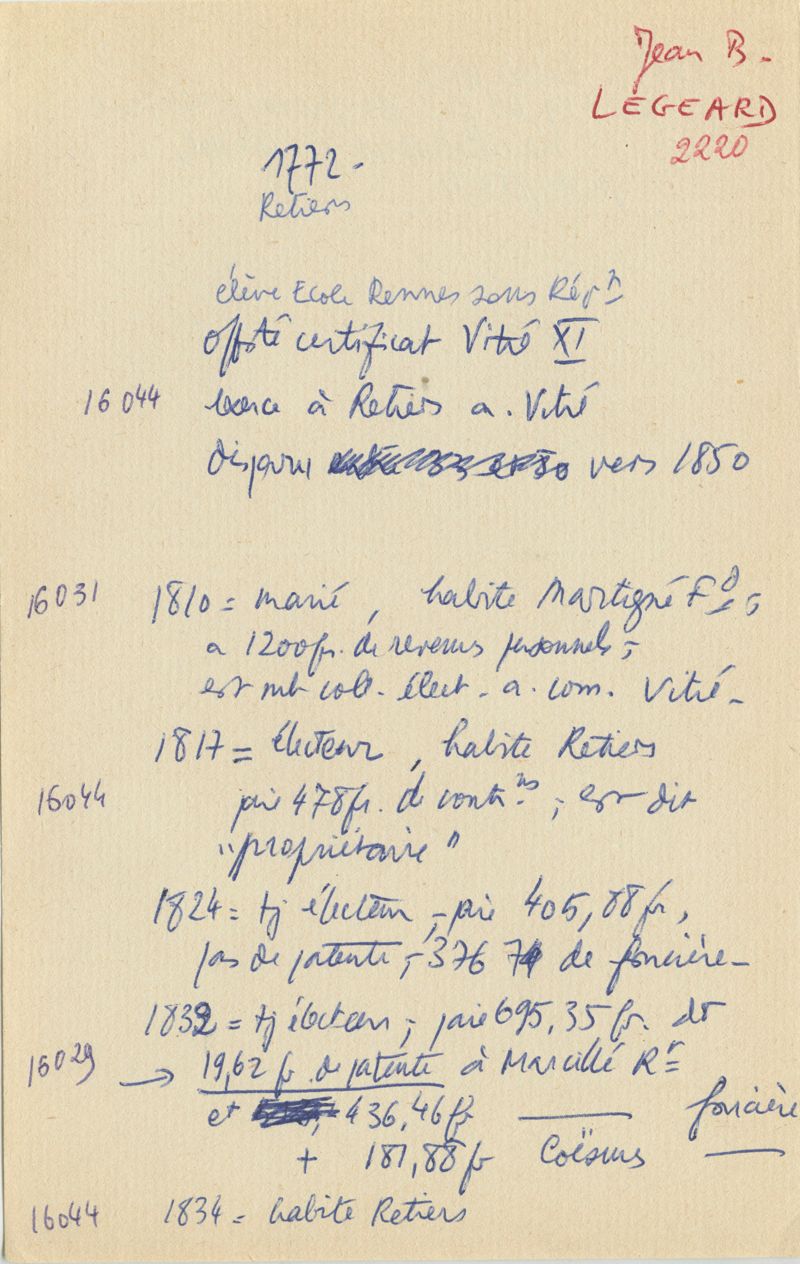 Jean B.
LEGEARD
2220
1772 -
Retiers
élève Ecole Rennes sans Rép.n
certificat Vitié XI
16044 exerce à Retiers a. Vitré
disparu vers 1850
16031 1810 = marié, habite Martigné Fd ;
a 1200 fr. de revenus personnels ;
est mb coll. élect. a. com. Vitré -
1817 = électeur, habite Retiers
16044 paie 478 fr. de contr.ns ; est dit
"propriétaire"
1824 = tj électeur ; paie 405,88 fr,
pas de patente ; 376 74 de foncière -
1832 = tj électeur ; paie 695,35 fr. dt
16029 → 19,62 fr. de patente à Marcillé Rt
et 436,46 fr ——— foncière
+ 181,88 fr Coësmes ———
16044 1834 = habite Retiers